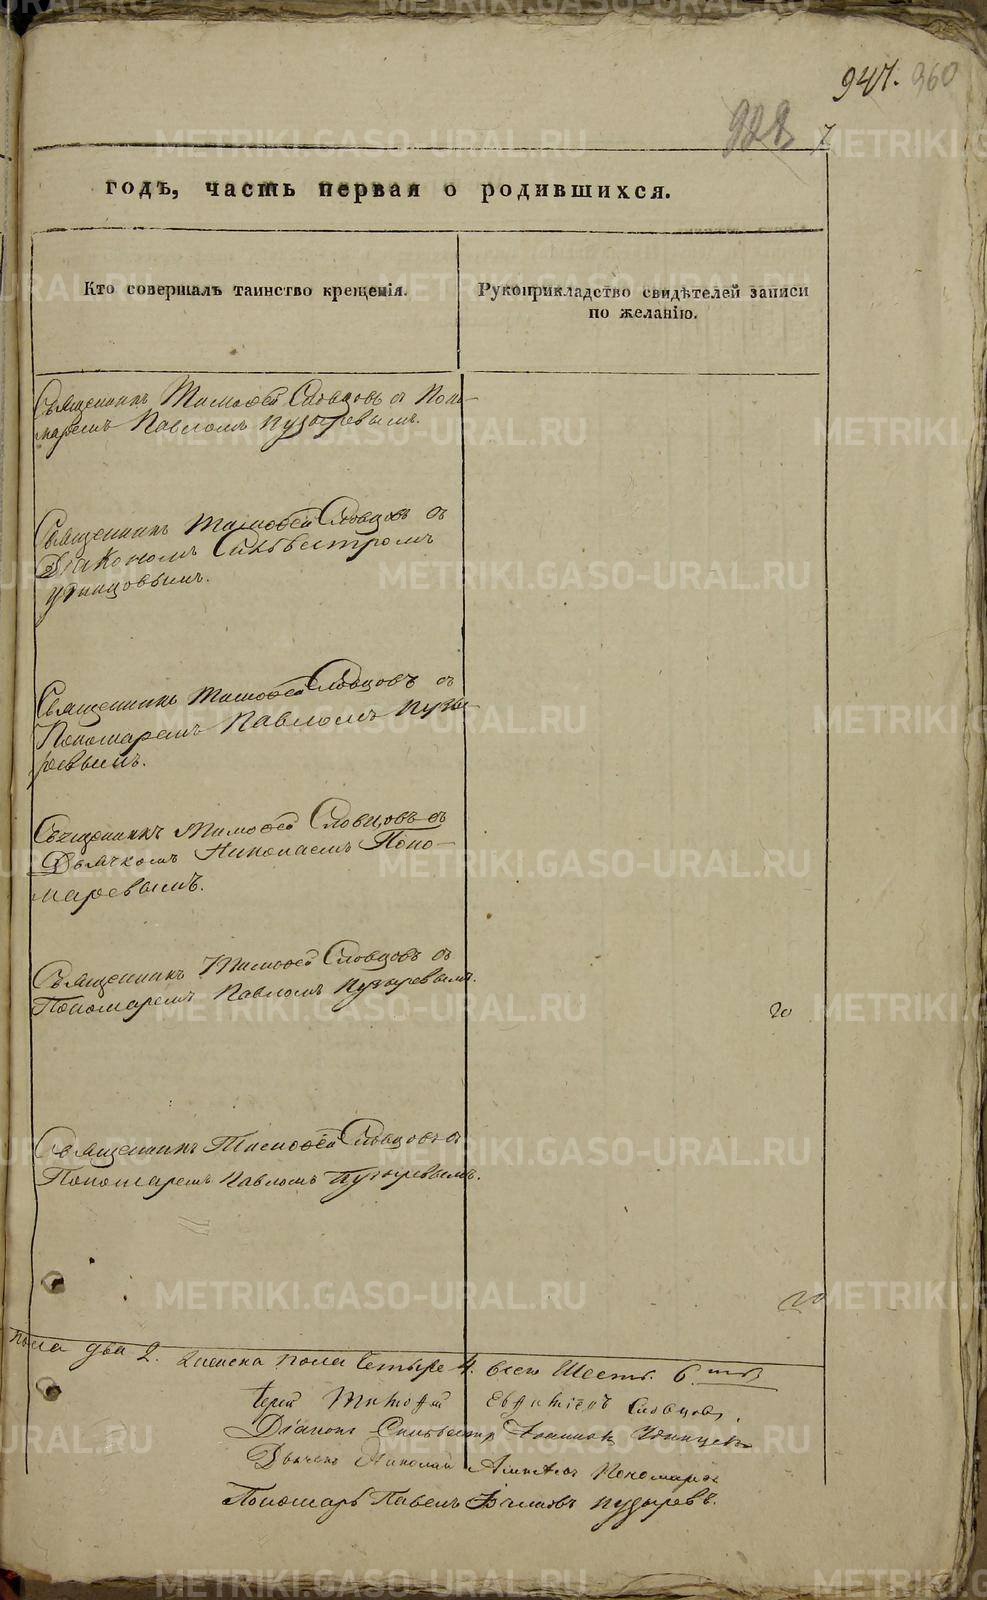 947. 960
922 7
годъ, часть первая о родившихся.
Кто совершалъ таинство крещенія.
Рукоприкладство свидѣтелей записи
по желанію.
Священникъ Тимоѳей Словцовъ съ Поно-
маремъ Павломъ Пузыревымъ.
Священникъ Тимоѳей Словцовъ съ
Діакономъ Сильвестромъ
Удинцовымъ.
Священникъ Тимоѳей Словцовъ съ
Пономаремъ Павломъ Пузы-
ревымъ.
Священникъ Тимоѳей Словцовъ съ
Дьячкомъ Николаемъ Поно-
маревымъ.
Священникъ Тимоѳей Словцовъ съ
Пономаремъ Павломъ Пузыревымъ.
20
Священникъ Тимоѳей Словцовъ съ
Пономаремъ Павломъ Пузыревымъ.
20
пола два 2. женска пола четыре 4. всего шесть 6.
Іерей Тимоѳей Словцовъ
Діаконъ Сильвестръ Удинцевъ
Дьячекъ Николай Пономаревъ
Пономарь Павелъ Пузыревъ.
METRIKI.GASO-URAL.RU